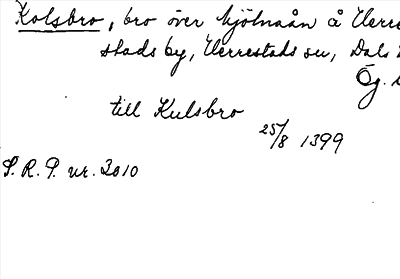 Kolsbro, bro över Mjölnaån å Herre
stads by, Herrestads sn, Dals
Ög.
till Kulsbro
25/8 1399
S.R.P. nr. 3010